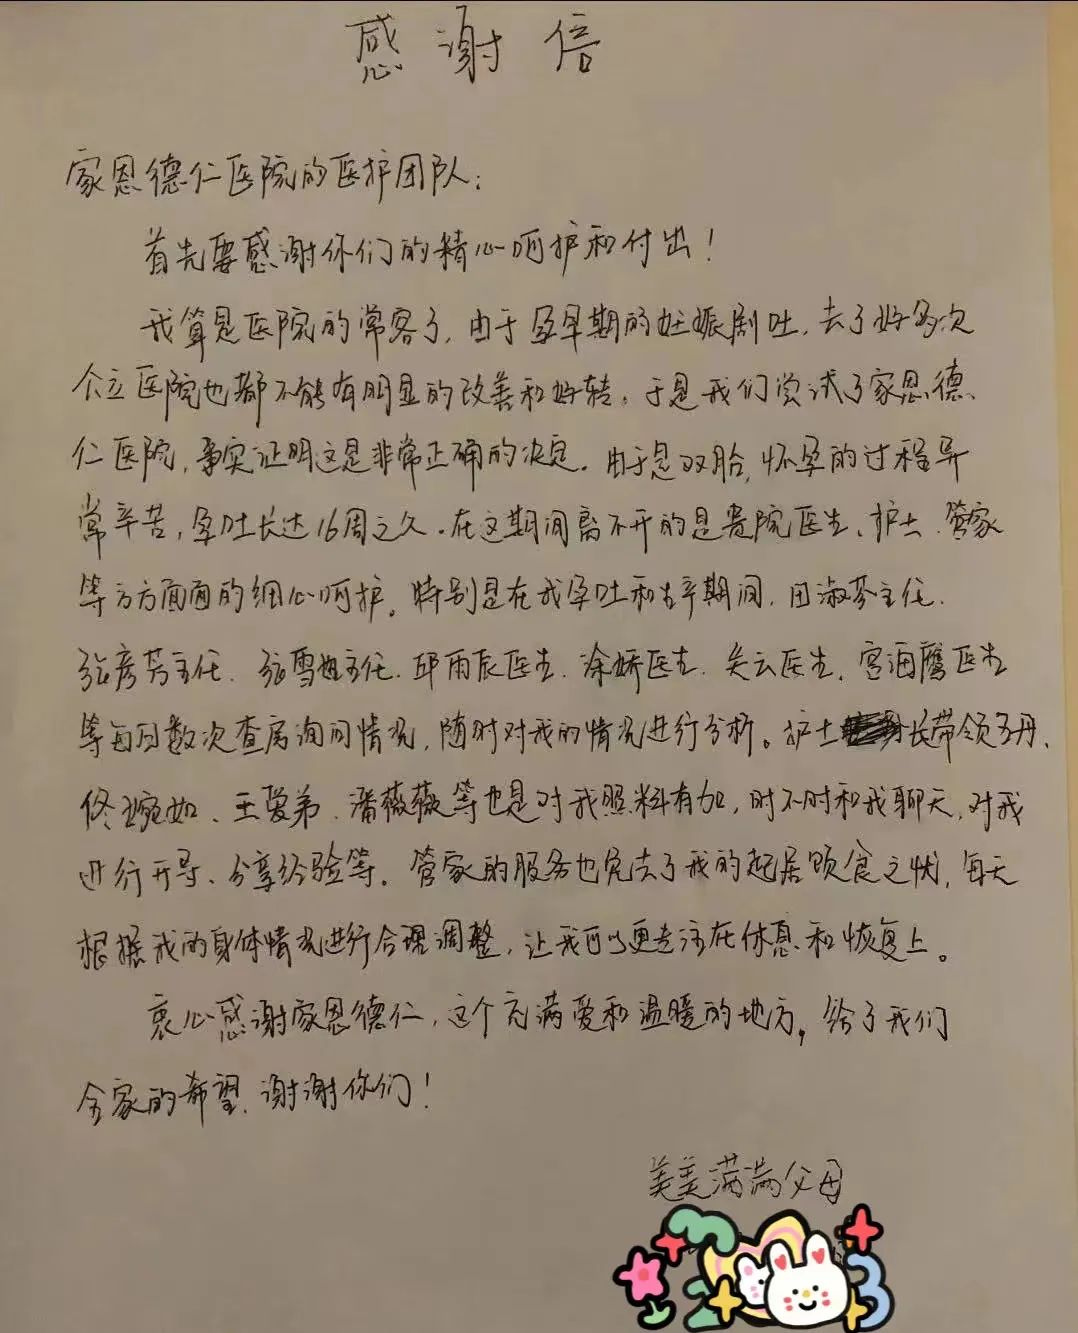 感谢信
家恩德仁医院的医护团队：
首先要感谢你们的精心呵护和付出！
我算是医院的常客了，由于孕早期的妊娠剧吐，去了好多次
公立医院也都不能有明显的改善和好转。于是我们尝试了家恩德
仁医院，事实证明这是非常正确的决定。由于是双胎，怀孕的过程异
常辛苦，孕吐长达16周之久。在这期间离不开的是贵院医生、护士、管家
等方方面面的细心呵护。特别是在我孕吐和生产期间，田淑芬主任、
张彦芳主任、张雪姐主任、邱雨辰医生、涂娇医生、关云医生、宫海鹰医生
等每日数次查房询问情况，随时对我的情况进行分析。护士长带领
佟琬如、王爱弟、潘薇薇等也是对我照料有加，时不时和我聊天，对我
进行开导、分享经验等。管家的服务也免去了我的起居饮食之忧，每天
根据我的身体情况进行合理调整，让我可以更专注在休息和恢复上。
衷心感谢家恩德仁，这个充满爱和温暖的地方，给了我们
全家的希望，谢谢你们！
美美满满父母